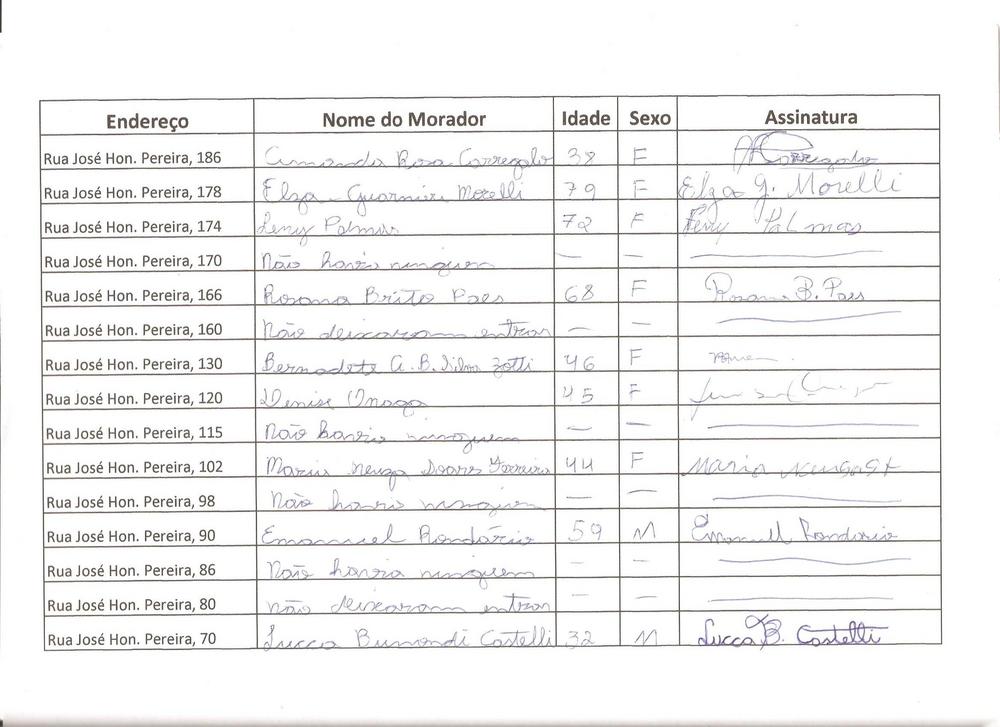 Endereço Nome do Morador Idade Sexo Assinatura
Rua José Hon. Pereira, 186 Amanda Rosa Corregalo 38 F
Rua José Hon. Pereira, 178 Elza Guarnier Morelli 79 F Elza G. Morelli
Rua José Hon. Pereira, 174 Leny Palmas 72 F Leny Palmas
Rua José Hon. Pereira, 170 Não havia ninguem — —
Rua José Hon. Pereira, 166 Rosana Brito Paes 68 F Rosana B. Paes
Rua José Hon. Pereira, 160 Não deixaram entrar — —
Rua José Hon. Pereira, 130 Bernadete A. B. Silva Zotti 46 F
Rua José Hon. Pereira, 120 Denise 45 F
Rua José Hon. Pereira, 115 Não havia ninguem — —
Rua José Hon. Pereira, 102 Maria Neuza Soares Ferreira 44 F Maria
Rua José Hon. Pereira, 98 Não havia ninguem — —
Rua José Hon. Pereira, 90 Emanuel Rondário 59 M Emanuell Rondario
Rua José Hon. Pereira, 86 Não havia ninguem — —
Rua José Hon. Pereira, 80 não deixaram entrar — —
Rua José Hon. Pereira, 70 Lucca Castelli 32 M Lucca B. Castelli